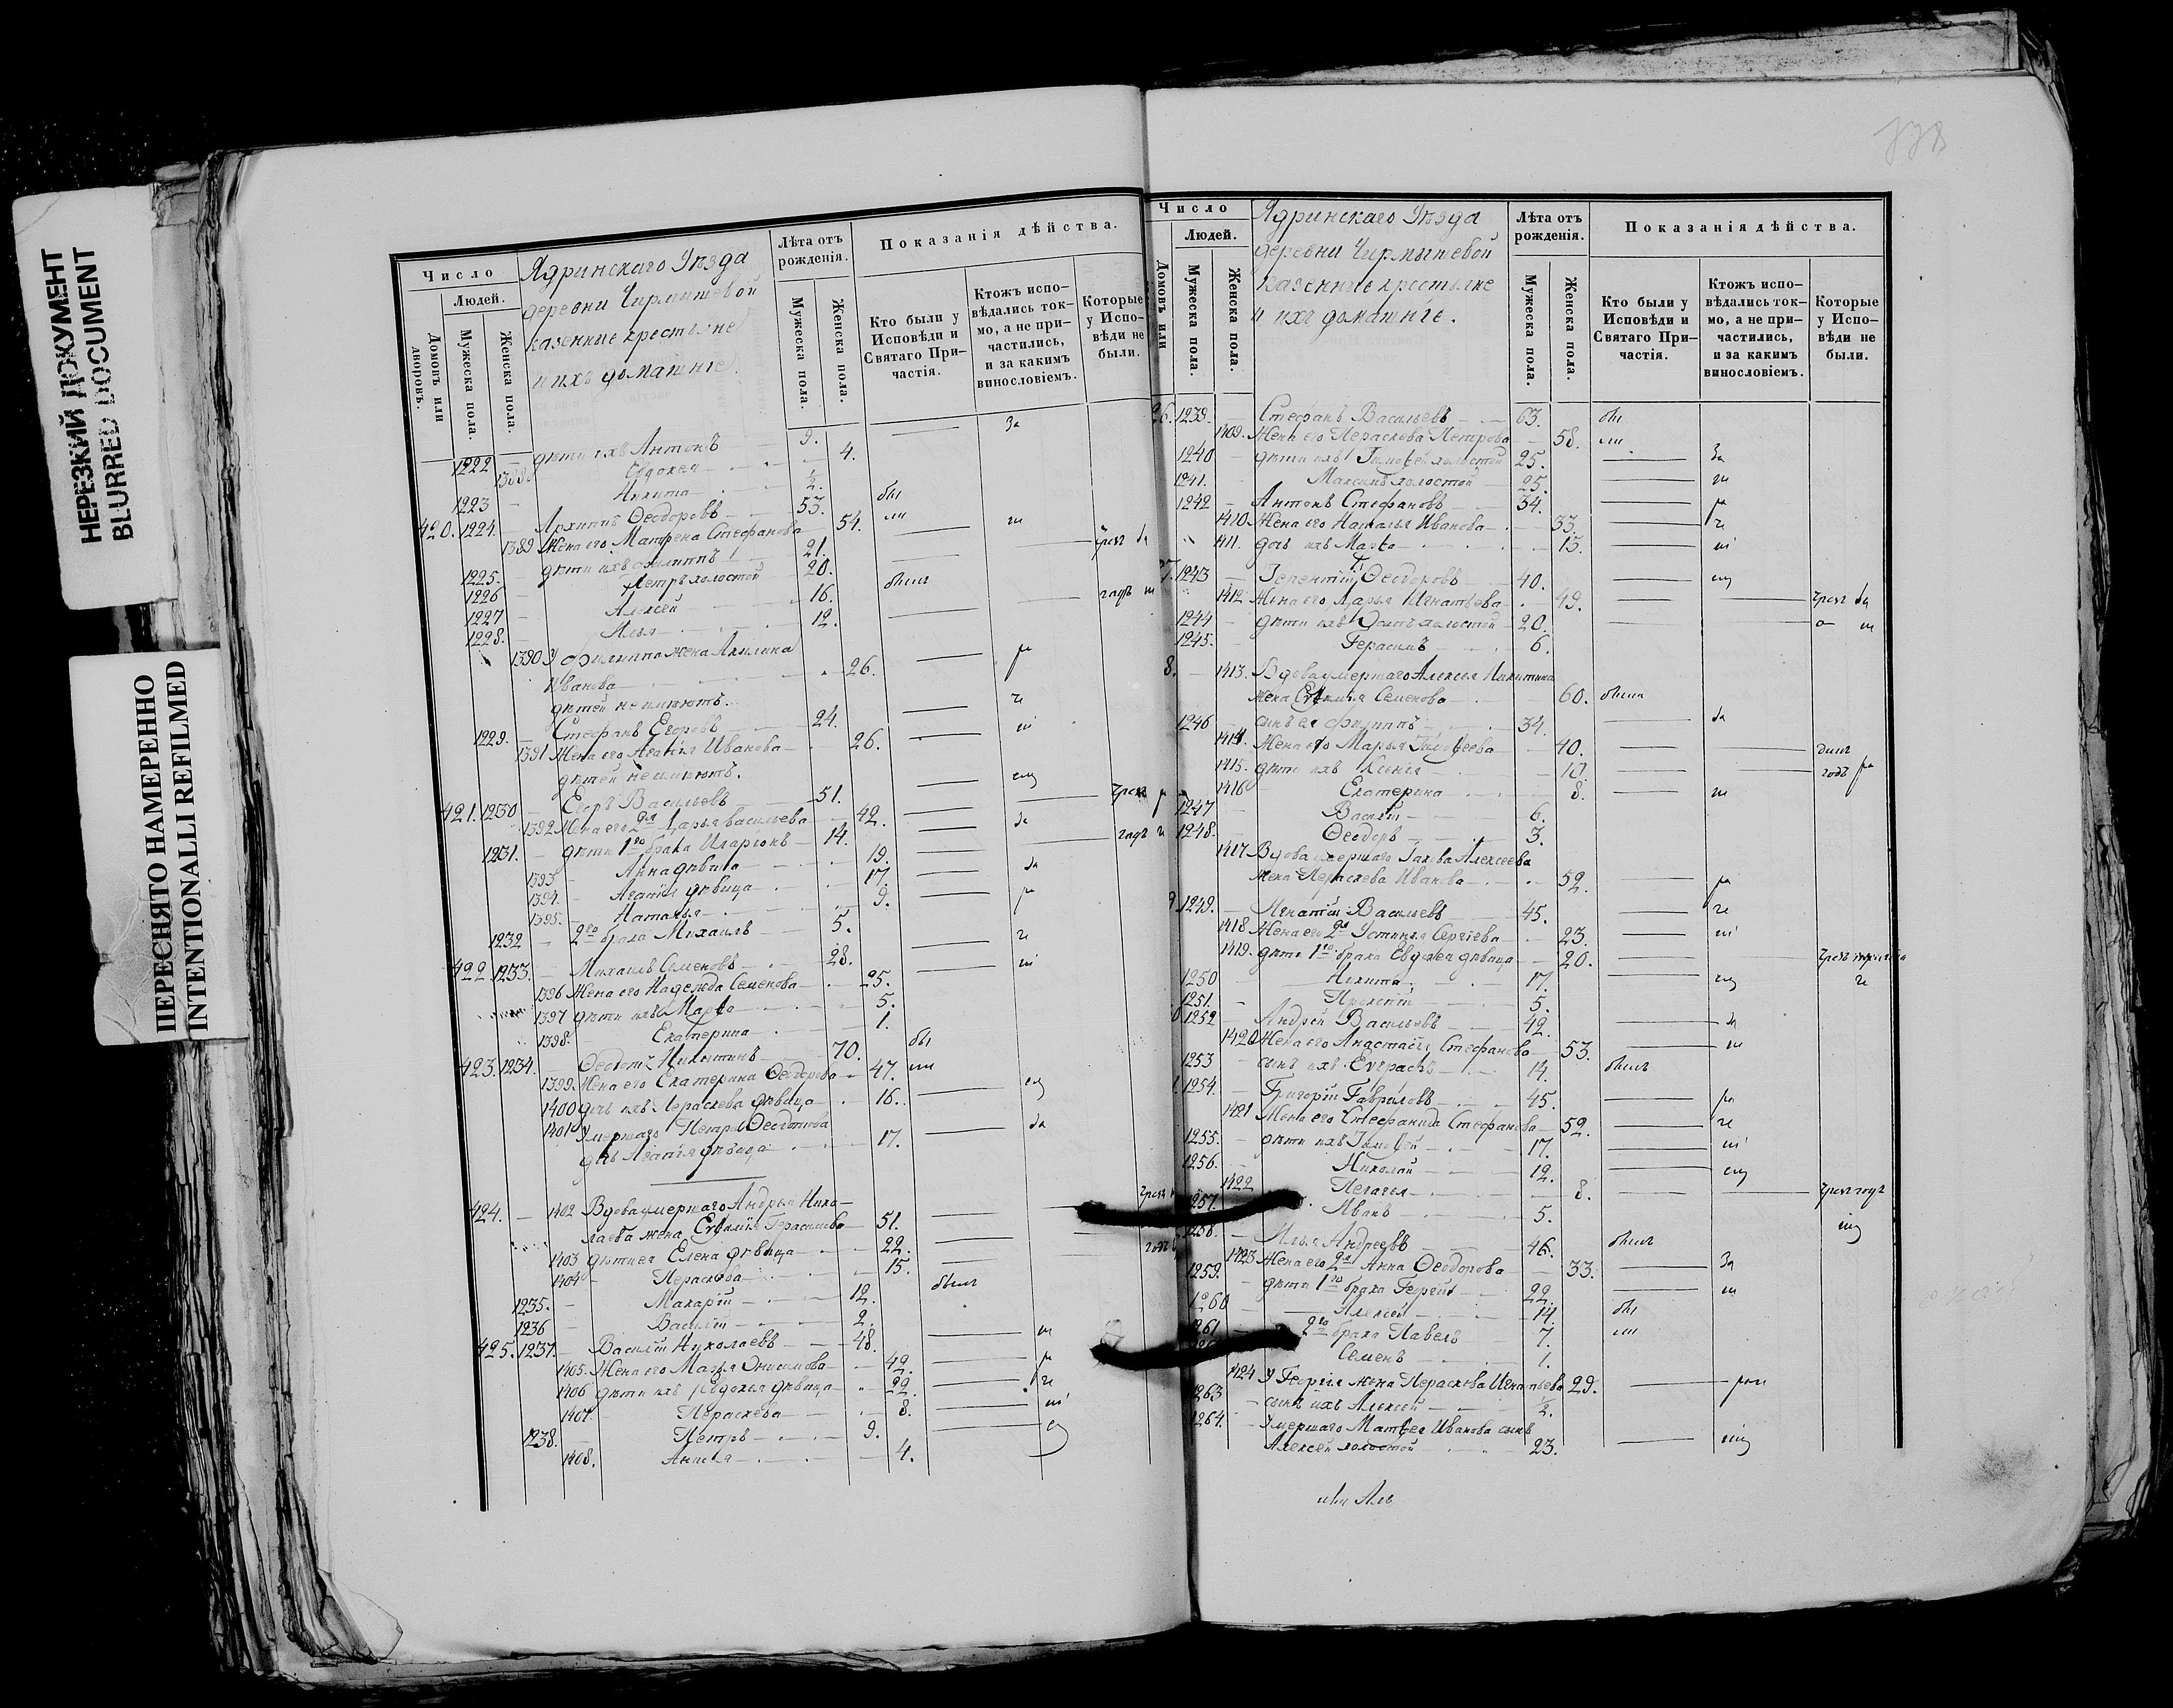 НЕРЕЗКИЙ ДОКУМЕНТ
BLURRED DOCUMENT
ПЕРЕСНЯТО НАМЕРЕННО
INTENTIONALLI REFILMED
Число
Людей.
Домовъ или дворовъ.
Мужеска пола.
Женска пола.
Ядринскаго Уѣзда
деревни Чирмышевой
казенные крестьяне
и ихъ домашніе.
Лѣта отъ рожденія.
Мужеска пола.
Женска пола.
Показанія дѣйства.
Кто были у Исповѣди и Святаго Причастія.
Ктожъ исповѣдались токмо, а не причастились, и за какимъ винословіемъ.
Которые у Исповѣди не были.
1222 дѣти ихъ Антонъ 9. За
1388 Евдокея 4.
1223 Никита ½.
420. 1224. Архиппъ Ѳеодоровъ 53. бы
1389 Жена его Матрена Стефанова 54. ли
1225. дѣти ихъ Филиппъ 21.
1226 Петръ холостой 20.
1227 Алексей 16. былъ
1228. Илья 12.
1390 У Филиппа жена Акилина
Иванова 26.
дѣтей неимѣютъ.
1229. Стефанъ Егоровъ 24.
1391 Жена его Агафія Иванова 26.
дѣтей неимѣютъ.
421. 1230 Егоръ Васильевъ 51.
1392 Жена его 2я Дарья Васильева 42.
1231. дѣти 1го брака Иларіонъ 14.
1393 Анна дѣвица 19.
1394. Агафія дѣвица 17.
1395. Наталья 9.
1232 2го брака Михаилъ 5.
422 1233. Михаилъ Семеновъ 28.
1396 Жена его Надежда Семенова 25.
1397 дѣти ихъ Марѳа 5.
1398. Екатерина 1.
423. 1234. Ѳеодотъ Никитинъ 70. бы
1399. Жена его Екатерина Ѳеодорова 47. ли
1400 дочь ихъ Параскева дѣвица 16.
1401 Умершаго Петра Ѳеодотова
дочь Агафія дѣвица 17.
424. 1402 Вдова умершаго Андрея Нико-
лаева жена Евѳимія Герасимова 51.
1403 дѣти ея Елена дѣвица 22.
1404 Параскева 15.
1235. Макарій 12. былъ
1236 Василій 2.
425. 1237. Василій Николаевъ 48.
1405. Жена его Марья Онисимова 42.
1406 дѣти ихъ Евдокея дѣвица 22.
1407. Параскева 8.
1238. Петръ 9.
1408. Анисья 4.
Число
Людей.
Домовъ или
Мужеска пола.
Женска пола.
Ядринскаго Уѣзда
деревни Чирмышевой
казенные крестьяне
и ихъ домашніе.
Лѣта отъ рожденія.
Мужеска пола.
Женска пола.
Показанія дѣйства.
Кто были у Исповѣди и Святаго Причастія.
Ктожъ исповѣдались токмо, а не причастились, и за какимъ винословіемъ.
Которые у Исповѣди не были.
26. 1239. Стефанъ Васильевъ 63. бы
1409. Жена его Параскева Петрова 58. ли
1240 дѣти ихъ Тимоѳей холостой 25. За
1241. Максимъ холостой 25.
1242 Антонъ Стефановъ 34.
1410 Жена его Наталья Иванова 33.
1411. дочь ихъ Марѳа 15.
27. 1243 Терентій Ѳеодоровъ 40.
1412 Жена его Дарья Игнатьева 49.
1244 дѣти ихъ Осипъ холостой 20.
1245. Герасимъ 6.
8. 1413. Вдова умершаго Алексея Никитина
жена Евѳимья Семенова 60. была
1246 сынъ ея Филиппъ 34.
1414. Жена его Марья Тимоѳеева 40.
1415. дѣти ихъ Ксенія 10.
1416 Екатерина 8.
1247 Василій 6.
1248. Ѳеодоръ 3.
1417 Вдова умершаго Іакова Алексеева
жена Параскева Иванова 52.
9. 1249. Игнатій Васильевъ 45.
1418 Жена его 2я Устинья Сергіева 23.
1419. дѣти 1го брака Евдокея дѣвица 20.
1250 Никита 17.
1251. Прокопій 5.
1252 Андрей Васильевъ 42.
1420 Жена его Анастасія Стефанова 53.
1253 сынъ ихъ Евграфъ 14. былъ
1254. Григорій Гавриловъ 45.
1421 Жена его Стефанида Стефанова 52.
1255. дѣти ихъ Тимоѳей 17.
1256. Николай 12.
1422 Пелагея 8.
1257. Иванъ 5.
1258. Илья Андреевъ 46. былъ
1423 Жена его 2я Анна Ѳеодорова 33. За
1259. дѣти 1го брака Георгій 22.
1260 Алексей 14. бы
1261 2го брака Павелъ 7. ли
Семенъ 1.
1424 У Георгія жена Параскева Игнатьева 29.
1263 сынъ ихъ Алексей ½.
1264. Умершаго Матѳея Иванова сынъ
Алексей холостой 23.